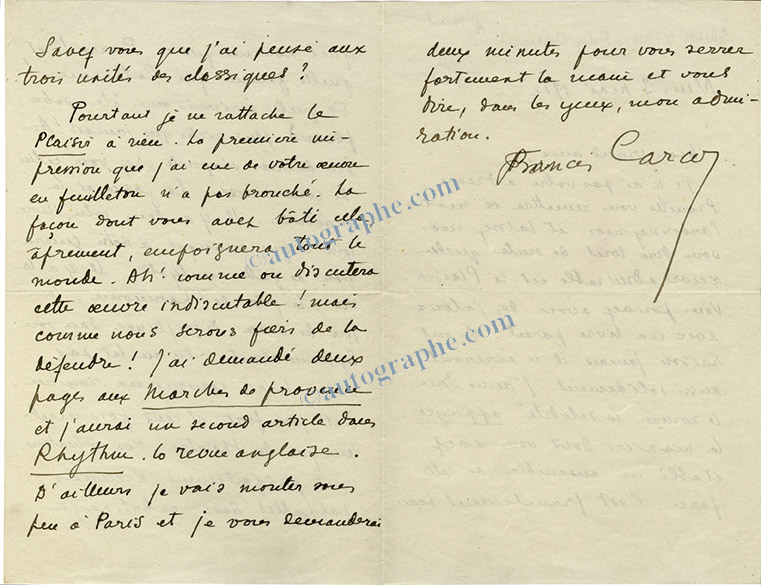 Savez vous que j'ai pensé aux
trois unités des classiques ?
Pourtant je ne rattache le
Plaisir à rien. La première im-
pression que j'ai eue de votre œuvre
en feuilleton n'a pas bronché. La
façon dont vous avez bâti cela
âprement, empoignera tout le
monde. Ah! comme on discutera
cette œuvre indiscutable ! mais
comme nous serons fiers de la
défendre ! J'ai demandé deux
pages aux Marches de provence
et j'aurai un second article dans
Rhythm. la revue anglaise.
D'ailleurs je vais monter sous
peu à Paris et je vous demanderai
deux minutes pour vous serrer
fortement la main et vous
dire, dans les yeux, mon admi-
ration.
Francis Carco
©autographe.com
©autographe.com